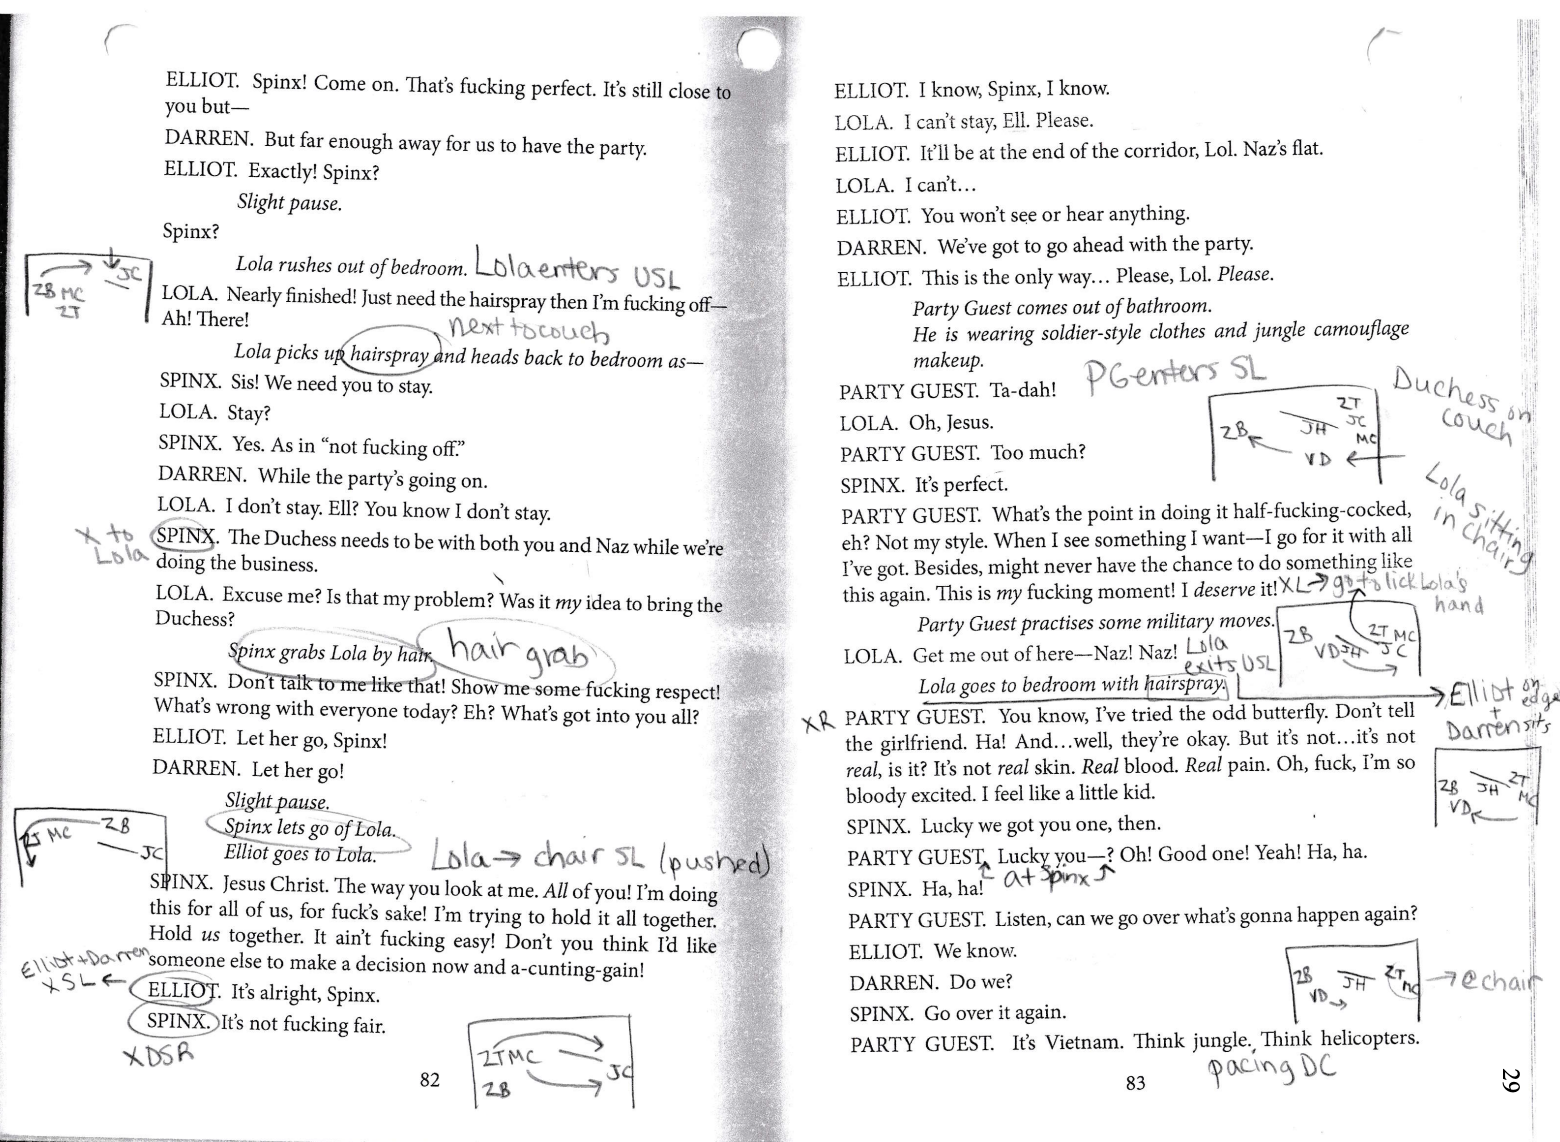 ELLIOT. Spinx! Come on. That's fucking perfect. It's still close to
you but—
DARREN. But far enough away for us to have the party.
ELLIOT. Exactly! Spinx?
Slight pause.
Spinx?
Lola rushes out of bedroom. Lola enters USL
JC
ZB MC
ZT
LOLA. Nearly finished! Just need the hairspray then I'm fucking off—
Ah! There!
next to couch
Lola picks up hairspray and heads back to bedroom as—
SPINX. Sis! We need you to stay.
LOLA. Stay?
SPINX. Yes. As in “not fucking off.”
DARREN. While the party's going on.
LOLA. I don't stay. Ell? You know I don't stay.
X to
Lola
SPINX. The Duchess needs to be with both you and Naz while we're
doing the business.
LOLA. Excuse me? Is that my problem? Was it my idea to bring the
Duchess?
Spinx grabs Lola by hair. hair grab
SPINX. Don't talk to me like that! Show me some fucking respect!
What's wrong with everyone today? Eh? What's got into you all?
ELLIOT. Let her go, Spinx!
DARREN. Let her go!
Slight pause.
Spinx lets go of Lola.
Elliot goes to Lola. Lola → chair SL (pushed)
ZT MC ZB
JC
SPINX. Jesus Christ. The way you look at me. All of you! I'm doing
this for all of us, for fuck's sake! I'm trying to hold it all together.
Hold us together. It ain't fucking easy! Don't you think I'd like
someone else to make a decision now and a-cunting-gain!
Elliot + Darren
X SL ←
ELLIOT. It's alright, Spinx.
SPINX. It's not fucking fair.
XDSR
ZT MC
JC
ZB
82
ELLIOT. I know, Spinx, I know.
LOLA. I can't stay, Ell. Please.
ELLIOT. It'll be at the end of the corridor, Lol. Naz's flat.
LOLA. I can't…
ELLIOT. You won't see or hear anything.
DARREN. We've got to go ahead with the party.
ELLIOT. This is the only way… Please, Lol. Please.
Party Guest comes out of bathroom.
He is wearing soldier-style clothes and jungle camouflage
makeup.
PG enters SL
PARTY GUEST. Ta-dah!
Duchess on
couch
ZT
JC
ZB JH MC
VD
LOLA. Oh, Jesus.
PARTY GUEST. Too much?
SPINX. It's perfect.
Lola sitting
in chair
PARTY GUEST. What's the point in doing it half-fucking-cocked,
eh? Not my style. When I see something I want—I go for it with all
I've got. Besides, might never have the chance to do something like
this again. This is my fucking moment! I deserve it! XL → go to lick Lola's
hand
Party Guest practises some military moves.
ZB ZT MC
VD JH JC
LOLA. Get me out of here—Naz! Naz! Lola
exits USL
Lola goes to bedroom with hairspray.
Elliot on
edge
+
Darren sits
XR PARTY GUEST. You know, I've tried the odd butterfly. Don't tell
the girlfriend. Ha! And…well, they're okay. But it's not…it's not
real, is it? It's not real skin. Real blood. Real pain. Oh, fuck, I'm so
bloody excited. I feel like a little kid.
ZB JH ZT
VD MC
SPINX. Lucky we got you one, then.
PARTY GUEST. Lucky you—? Oh! Good one! Yeah! Ha, ha.
at Spinx
SPINX. Ha, ha!
PARTY GUEST. Listen, can we go over what's gonna happen again?
ELLIOT. We know.
DARREN. Do we?
ZB JH ZT
VD MC
→ @ chair
SPINX. Go over it again.
PARTY GUEST. It's Vietnam. Think jungle. Think helicopters.
pacing DC
83
29